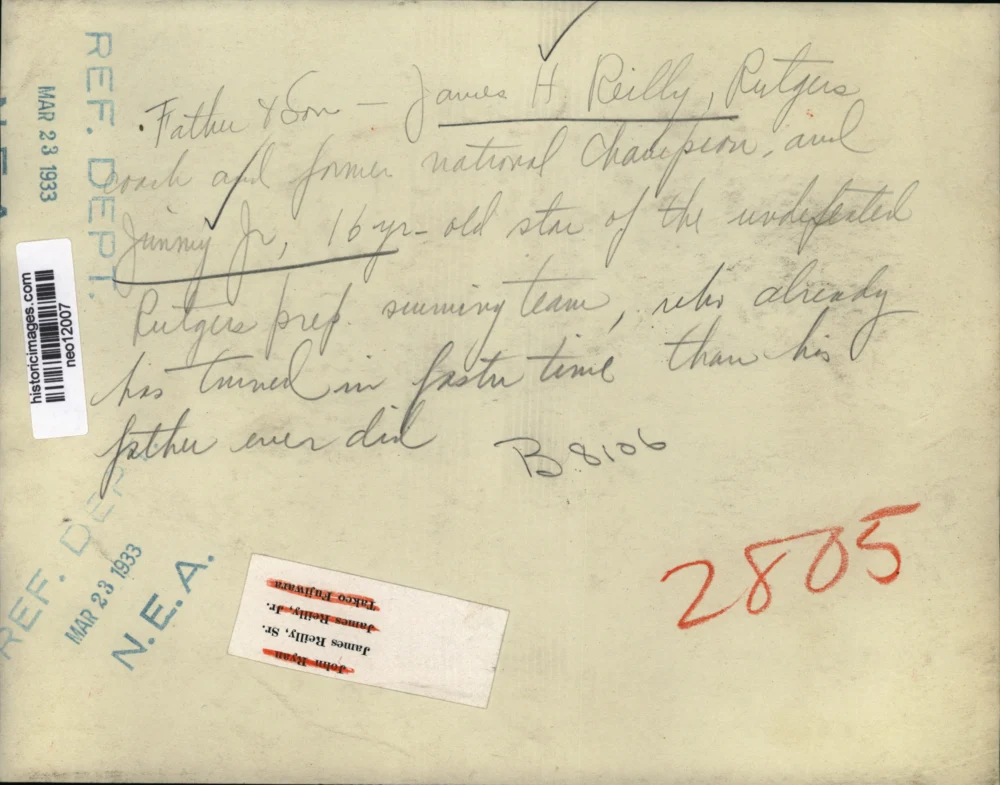 Father & Son — James H Reilly, Rutgers
coach and former national champion, and
Jimmy Jr, 16 yr-old star of the undefeated
Rutgers prep swimming team, who already
has turned in faster time than his
father ever did
B.8106
2805
REF. DEPT.
MAR 23 1933
historicimages.com
neo12007
REF. DEPT.
MAR 23 1933
N.E.A.
John Ryan
James Reilly, Sr.
James Reilly, Jr.
Takeo Fujiwara